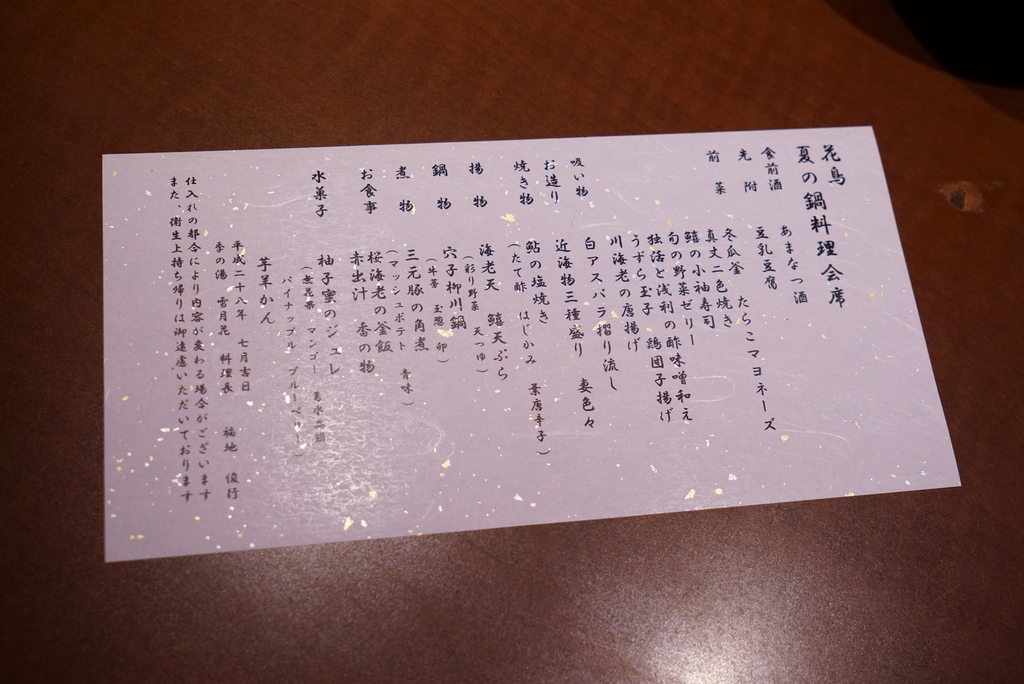 花鳥
夏の鍋料理会席
食前酒 あまなつ酒
先附 豆乳豆腐
前菜 冬瓜釜 たらこマヨネーズ
真丈二色焼き
鱚の小袖寿司
旬の野菜ゼリー
独活と浅利の酢味噌和え
うずら玉子 鶏団子揚げ
川海老の唐揚げ
吸い物 白アスパラ摺り流し
お造り 近海物三種盛り 妻色々
焼き物 鮎の塩焼き
(たて酢 はじかみ 葉唐辛子)
揚物 海老天 鱚天ぷら
(彩り野菜 天つゆ)
鍋物 穴子柳川鍋
(牛蒡 玉葱 卵)
煮物 三元豚の角煮
(マッシュポテト 青味)
お食事 桜海老の釜飯
赤出汁 香の物
水菓子 柚子蜜のジュレ
(無花果 マンゴー
パイナップル ブルーベリー)
芋羊かん
平成二十八年 七月吉日
季の湯 雪月花 料理長 福地 俊行
仕入れの都合により内容が変わる場合がございます
また、衛生上持ち帰りは御遠慮いただいております